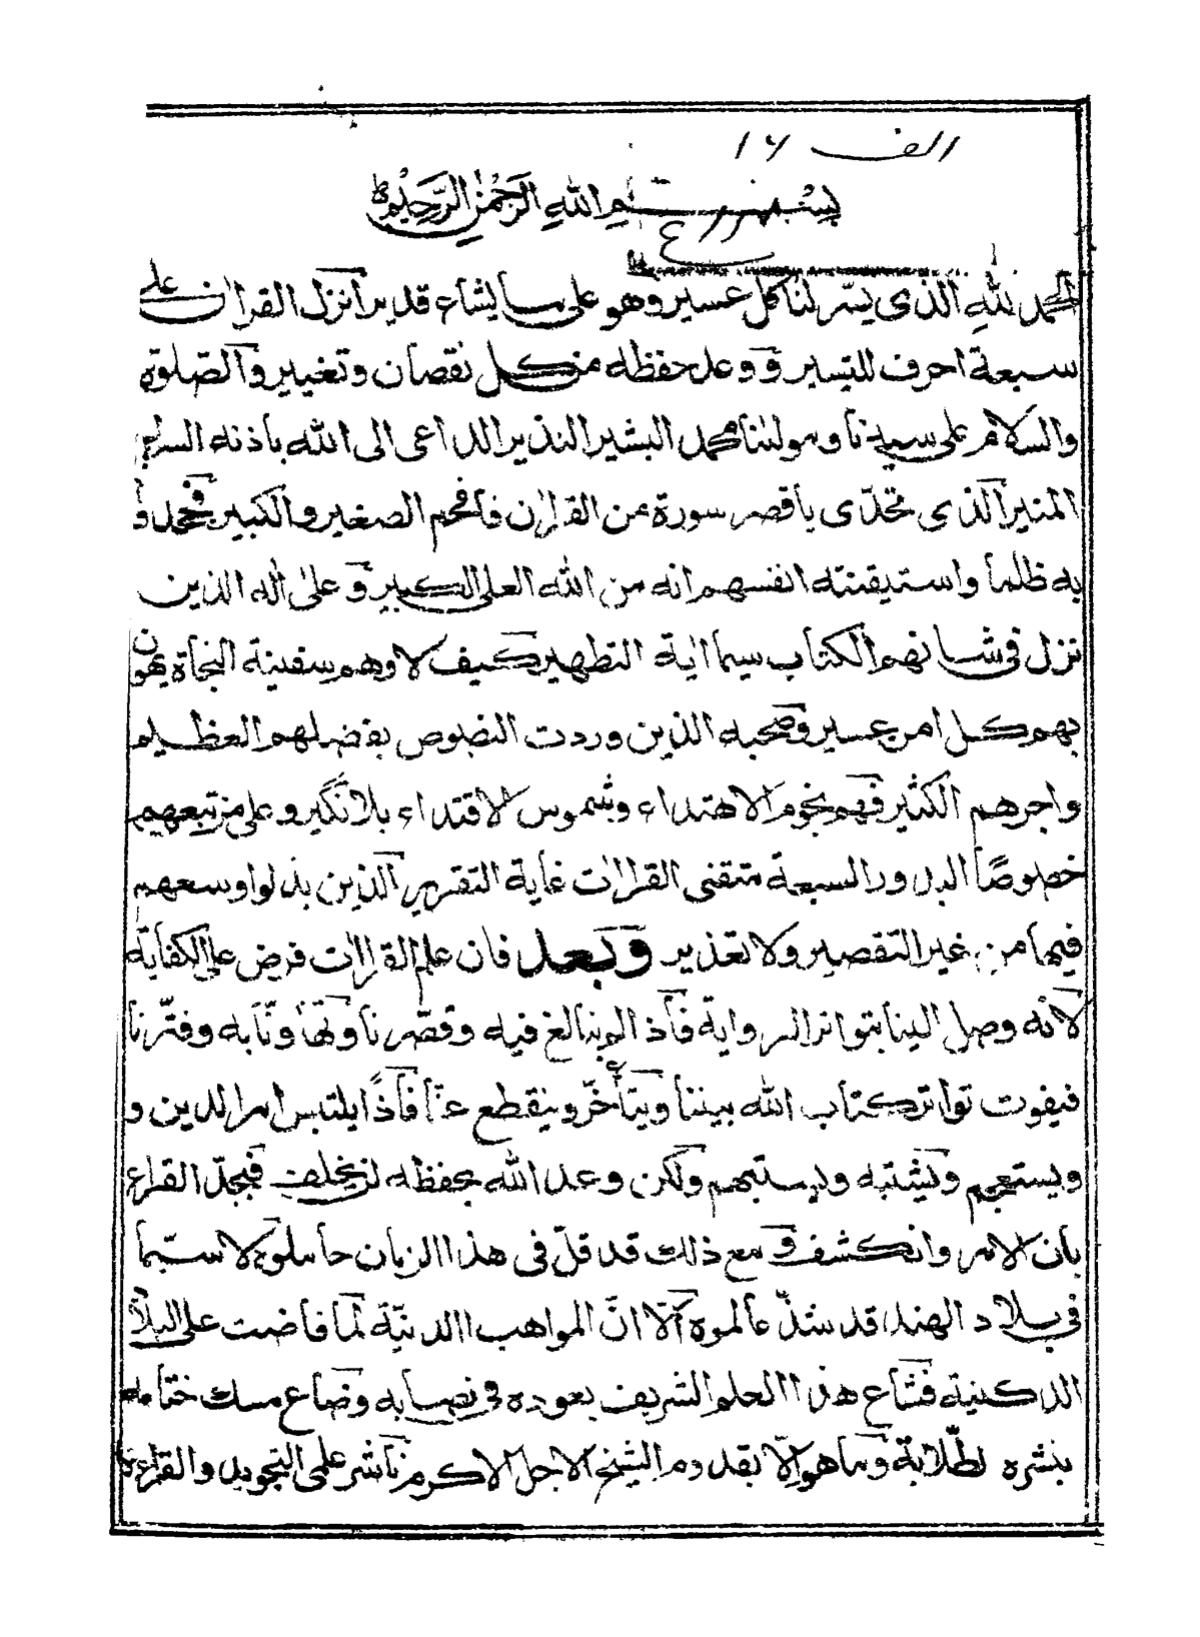 الف ١٦
بسم الله الرحمن الرحيم
الحمد لله الذى يسّر لنا كل عسير وهو على ما يشاء قدير انزل القران على
سبعة احرف للتيسير و وعد حفظه من كل نقصان وتغيير والصّلوة
والسلام على سيدنا ومولنا محمد البشير النذير الداعى الى الله باذنه السراج
المنير الذى تحدّى باقصر سورة من القران فافحم الصغير والكبير فجحدوا
به ظلما واستيقنته انفسهم انه من الله العلى الكبير و على اله الذين
نزل فى شانهم الكتاب سيما اية التطهير كيف لا وهم سفينة النجاة يهون
بهم كل امر عسير وصحبه الذين وردت النصوص بفضلهم العظيم
واجرهم الكثير فهم نجوم الاهتداء وشموس الاقتداء بلا نكير وعلى من تبعهم
خصوصًا البدور السبعة متقنى القراات غاية التقرير الذين بذلوا وسعهم
فيها من غير التقصير ولا تعذير وبعد فان علم القراات فرض على الكفاية
لانه وصل الينا بتواتر الرواية فاذا لم نبالغ فيه وقصّرنا وتهاونّا به وفتّرنا
فيفوت تواتر كتاب الله بيننا ويتأخّر وينقطع عنّا فاذًا يلتبس امر الدين و
ويستعجم ويشتبه ويستبهم ولكن وعد الله بحفظه لن يخلف فبجدّ القراء
بان الامر وانكشف و مع ذلك قد قلّ فى هذا الزمان حاملوه لا سيّما
فى بلاد الهند قد شذّ عالموه الّا انّ المواهب الدينيّة لمّا فاضت على البلاد
الدكنية فشاع هذا العلم الشريف بعوده فى نصابه وضاع مسك ختامه
بنشره لطلّابة وما هو الّا بقدوم الشيخ الاجل الاكرم ناشر على التجويد والقراءة